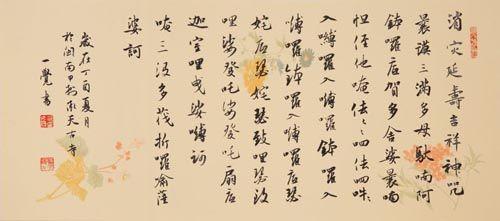 消灾延壽吉祥神咒
曩謨三滿多母馱喃阿
鉢囉底賀多舍娑曩喃
怛侄他唵佉佉
入嚩囉入嚩囉鉢囉入
嚩囉鉢囉入嚩囉底瑟
姹底瑟姹瑟致哩瑟致
哩娑癹吒娑癹吒扇底
迦室哩曳娑嚩訶
唵三波多
婆訶
歲在丁酉夏月
於閩南承天古寺
一覺書